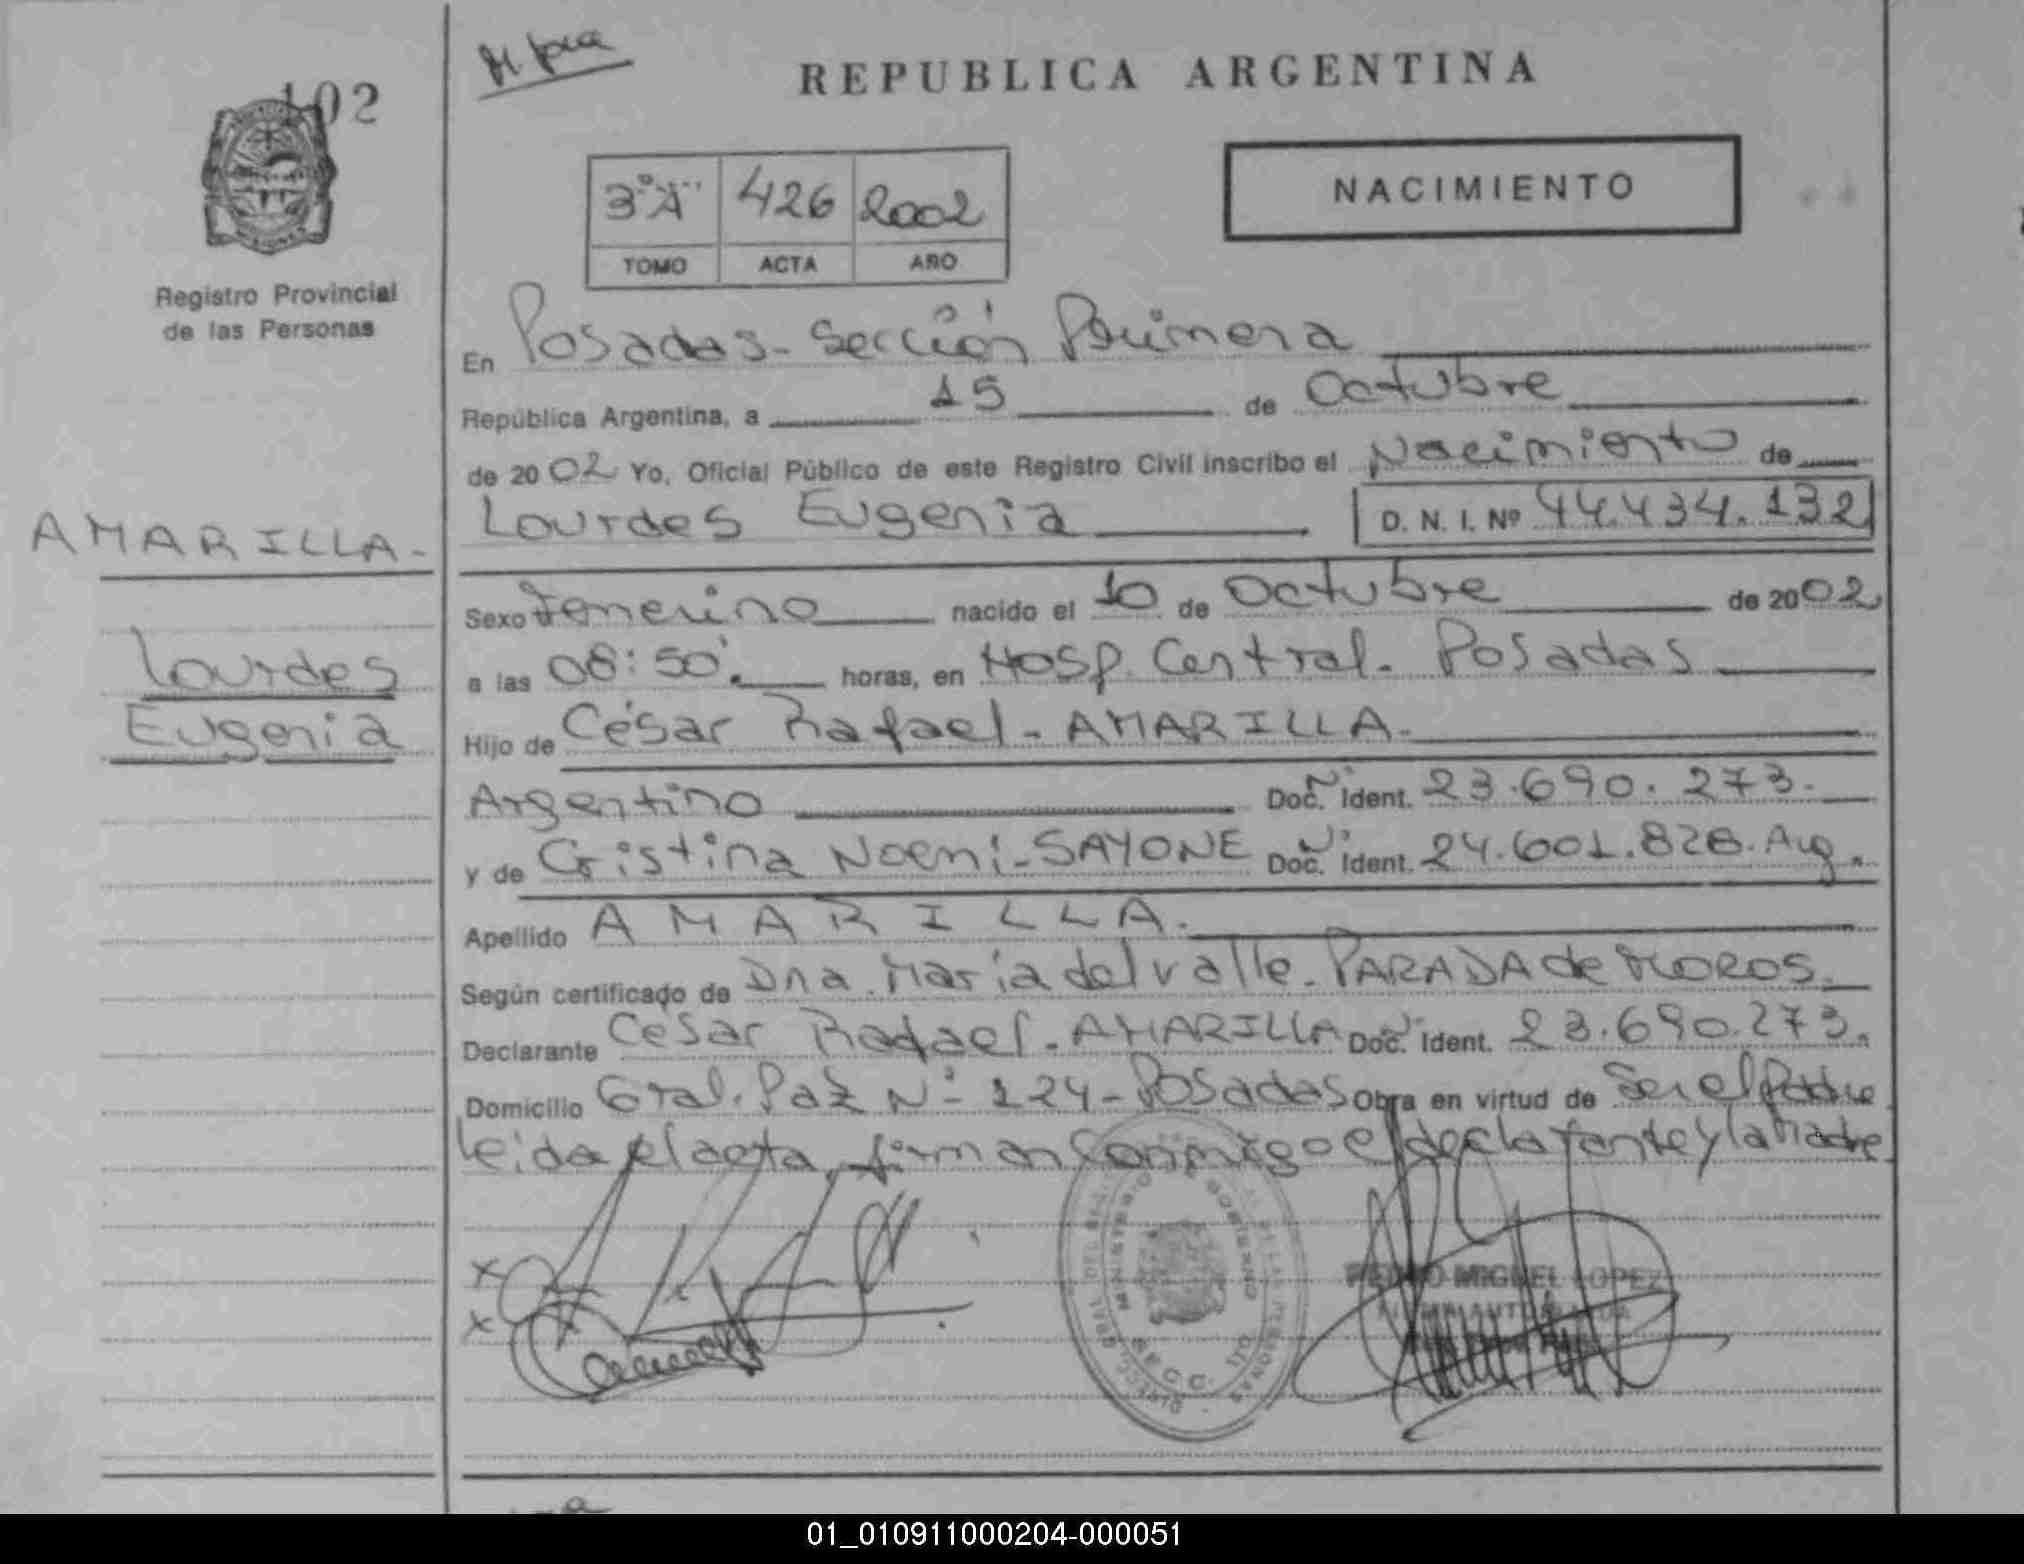 102
REPUBLICA ARGENTINA
3º "A" 426 2002
TOMO ACTA AÑO
NACIMIENTO
Registro Provincial
de las Personas
En Posadas - Sección Primera
República Argentina, a 15 de Octubre
de 2002 Yo, Oficial Público de este Registro Civil inscribo el Nacimiento de
Lourdes Eugenia D. N. I. Nº 44.434.132
AMARILLA.-
Lourdes
Eugenia
Sexo Femenino nacido el 10 de Octubre de 2002
a las 08:50'. horas, en Hosp. Central. Posadas
Hijo de César Rafael - AMARILLA.
Argentino Nº Doc. Ident. 23.690.273.
y de Cristina Noemi - SAYONE Nº Doc. Ident. 24.601.828. Arg.
Apellido AMARILLA.
Según certificado de Dna. Maria del valle. PARADA de MOROS.
Declarante César Rafael. AMARILLA Nº Doc. Ident. 23.690.273.
Domicilio Gral. Paz Nº 124 - Posadas Obra en virtud de Ser el Padre
leida el acta, firman conmigo el declarante y la Madre
x
x
MINISTERIO DE GOBIERNO
PEDRO MIGUEL LOPEZ
01_010911000204-000051